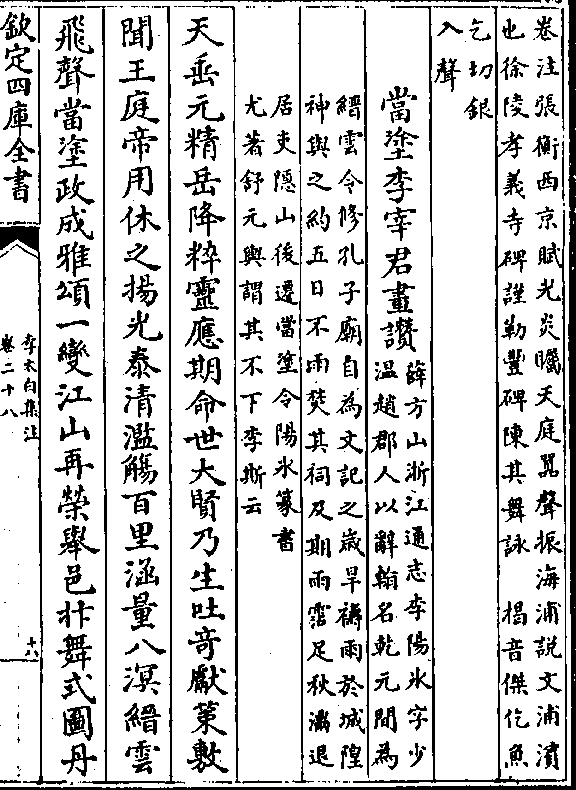 卷注張衡西京賦光炎矚天庭囂聲振海浦説文浦濵
也徐陵孝義寺碑謹勒豐碑陳其舞詠　楬音傑仡魚
乞切銀
入聲
當塗李宰君畫讃
薛方山浙江通志李陽氷字少
温趙郡人以辭翰名乾元間為
縉雲令修孔子廟自為文記之歲旱禱雨於城隍
神與之約五日不雨焚其祠及期雨霑足秋滿退
居吏隱山後遷當塗令陽氷篆書
尤著舒元輿謂其不下李斯云
天垂元精岳降粹靈應期命世大賢乃生吐奇獻策敷
聞王庭帝用休之揚光泰清濫觴百里涵量八溟縉雲
飛聲當塗政成雅頌一變江山再榮舉邑抃舞式圖丹
欽定四庫全書
李太白集注
卷二十八
十六